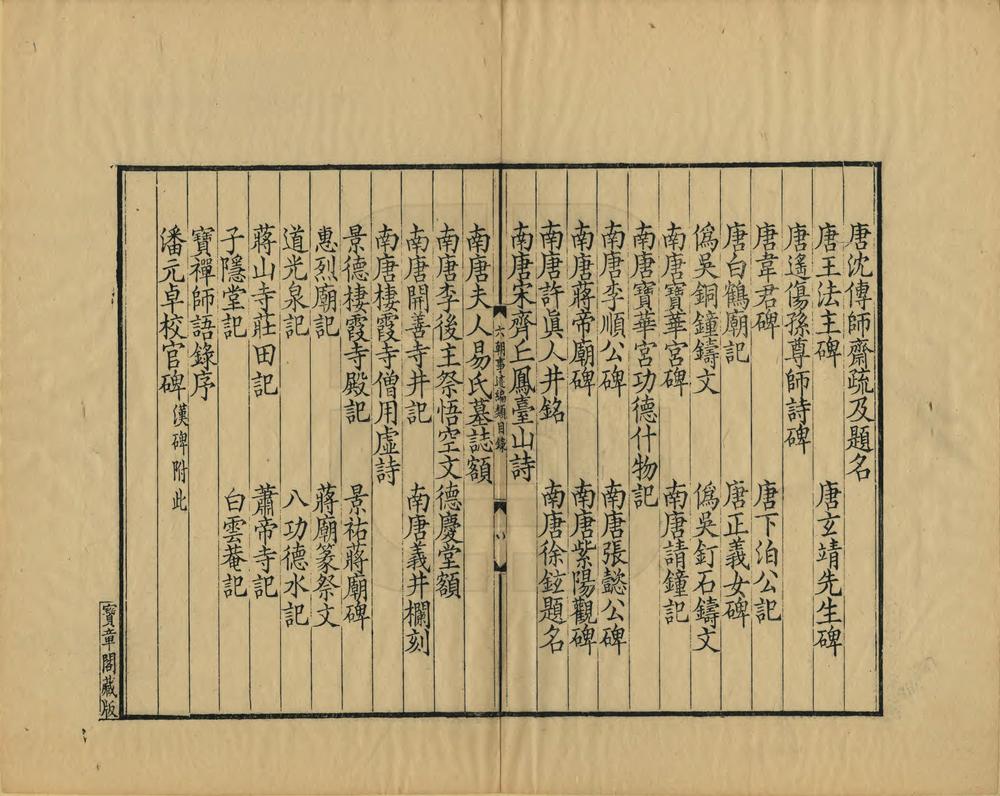 唐沈傳師齋疏及題名
唐王法主碑　唐玄靖先生碑
唐遙傷孫尊師詩碑
唐韋君碑　唐下泊公記
唐白鶴廟記　唐正義女碑
僞吳銅鐘鑄文　僞吳釘石鑄文
南唐寶華宮碑　南唐請鐘記
南唐寶華宮功德什物記
南唐李順公碑　南唐張懿公碑
南唐蔣帝廟碑　南唐紫陽觀碑
南唐許眞人井銘　南唐徐鉉題名
南唐宋齊丘鳳臺山詩
六朝事迹編類目錄　八
南唐夫人易氏墓誌額
南唐李後主祭悟空文　德慶堂額
南唐開善寺井記　南唐義井欄刻
南唐棲霞寺僧用虛詩
景德棲霞寺殿記　景祐蔣廟碑
惠烈廟記　蔣廟篆祭文
道光泉記　八功德水記
蔣山寺莊田記　蕭帝寺記
子隱堂記　白雲菴記
寶禪師語錄序
潘元卓校官碑　漢碑附此
寶章閣藏版